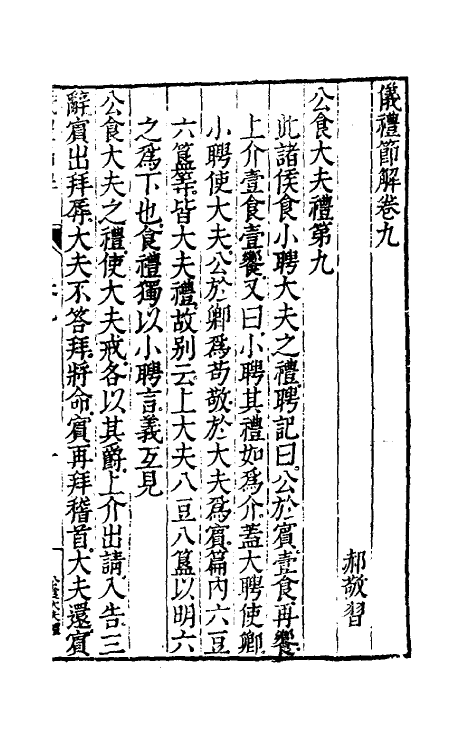 儀禮節解卷九
郝敬習
公食大夫禮第九
此諸侯食小聘大夫之禮聘記曰公於賓壹食再饗
上介壹食壹饗又曰小聘其禮如爲介蓋大聘使卿
小聘使大夫公於卿爲苟敬於大夫爲賓篇內六豆
六簋等皆大夫禮故別云上大夫八豆八簋以明六
之爲下也食禮獨以小聘言義互見
公食大夫之禮使大夫戒各以其爵上介出請入告三
辭賓出拜辱大夫不答拜將命賓再拜稽首大夫還賓